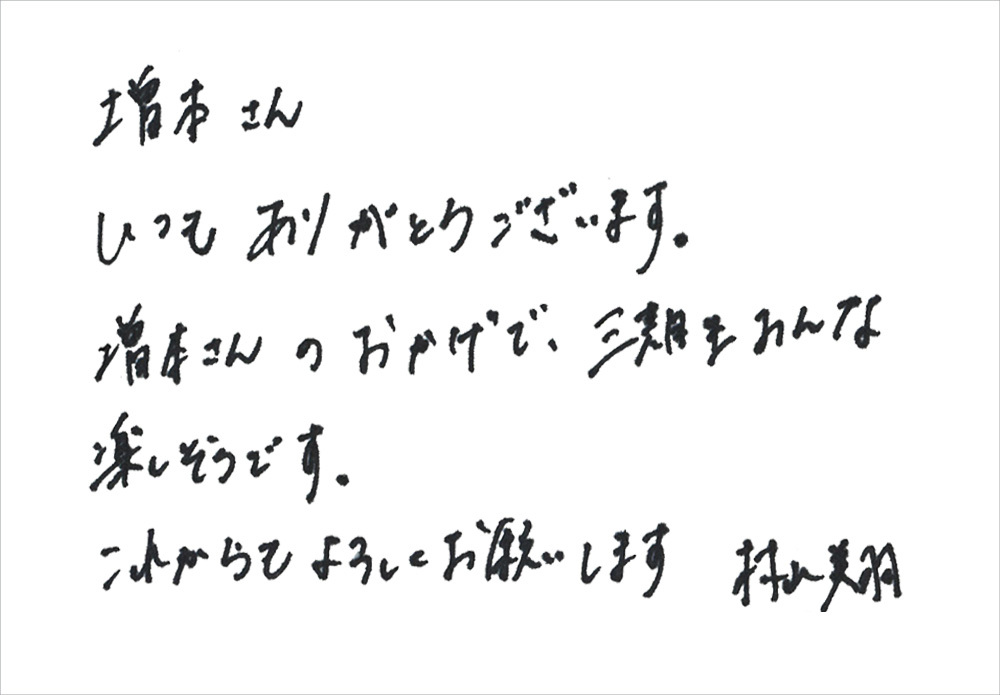 増本さん
いつも ありがとうございます。
増本さん の おかげで、三期生みんな
楽しそうです。
これからもよろしくお願いします 村山美羽